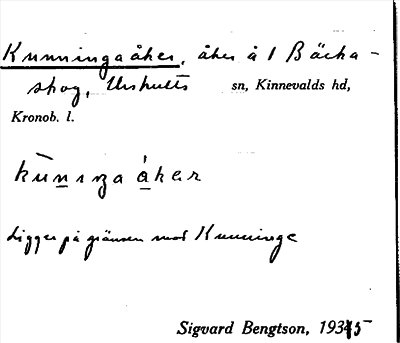 Kunningaåker, åker å 1 Bäcka-
skog, Urshults sn, Kinnevalds hd,
Kronob. l.
kun​ıŋa åkər
Ligger på gränsen mot Kunninge
Sigvard Bengtson, 1935